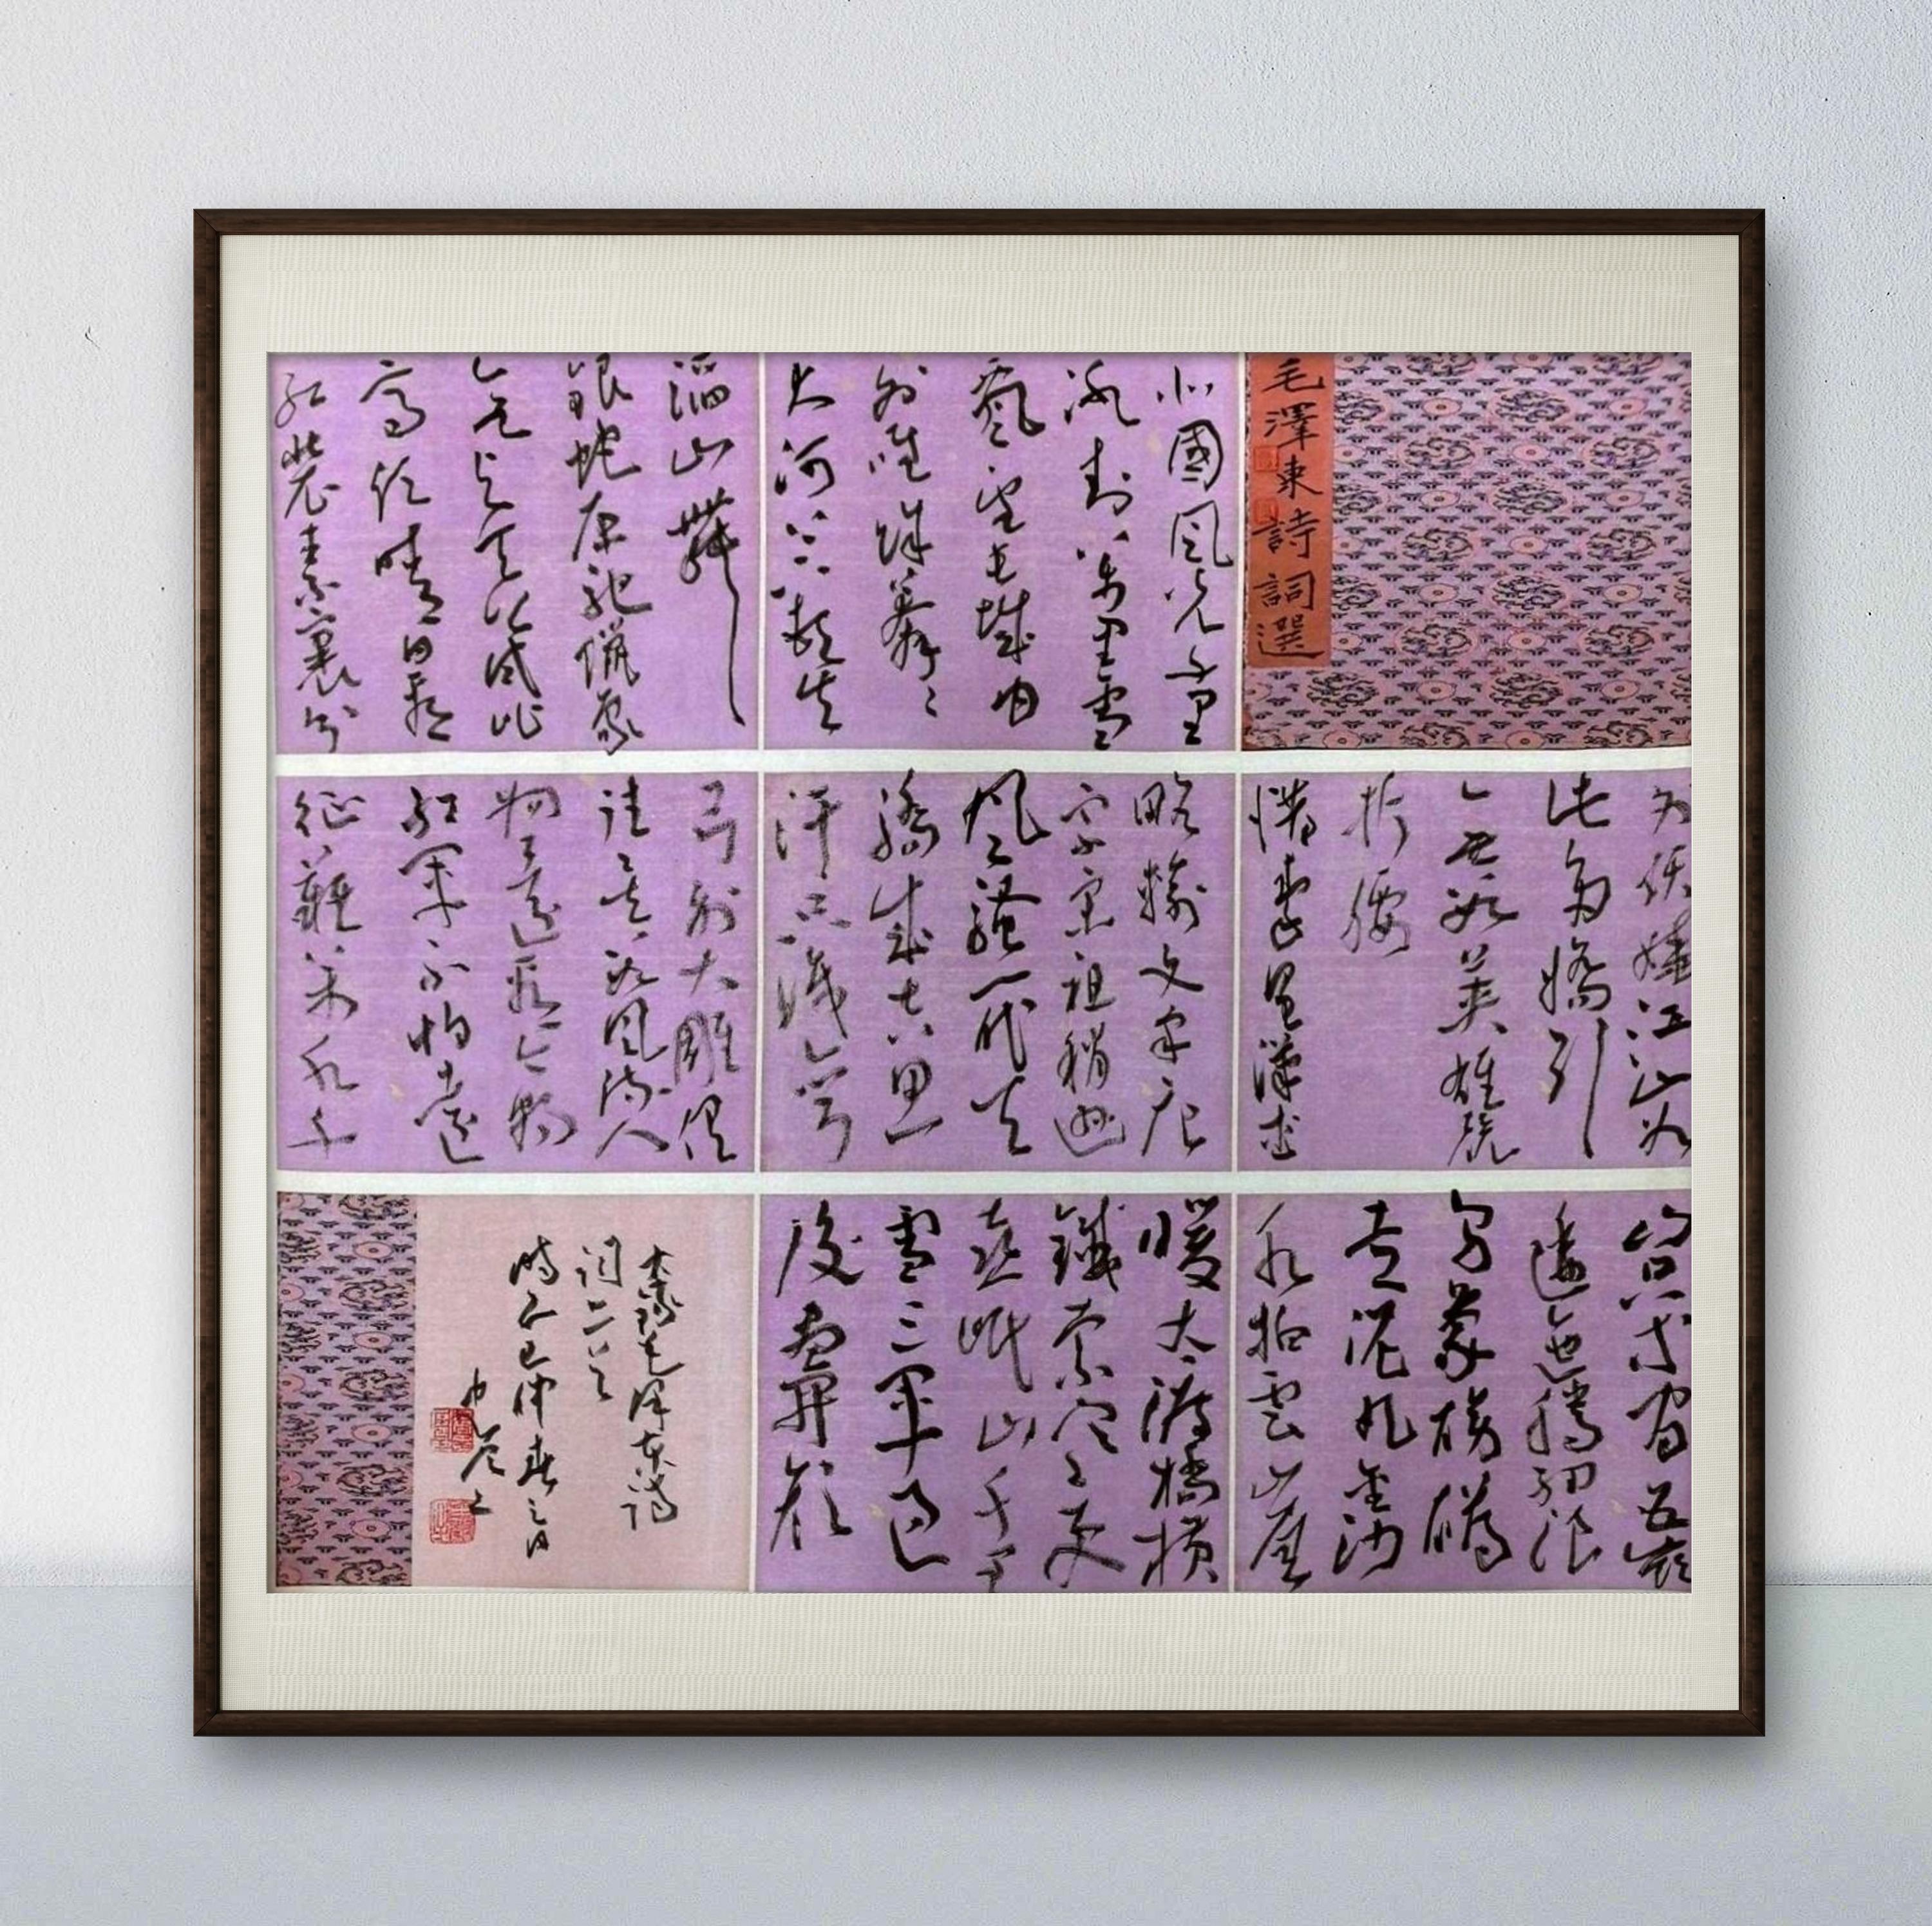 毛澤東詩詞選
北國風光千里
冰封萬里雪
飄望長城內
外唯餘莽々
大河上下頓失
滔山舞
銀蛇原馳蠟象
與天公試比
高須晴日看
紅裝素裹分
妖嬈江山如
此多嬌引
無數英雄競
折腰
惜秦皇漢武
略輸文采唐
宗宋祖稍遜
風騷一代天
驕成吉思
汗只識彎
弓射大雕俱
往矣數風流人
物還看今朝
紅軍不怕遠
征難萬水千
山只等閒五嶺
逶迤騰細浪
烏蒙磅礴
走泥丸金沙
水拍雲崖
暖大渡橋橫
鐵索寒更
喜岷山千里
雪三軍過
後盡開顏
錄毛澤東詩
詞二首
時乙巳仲春之月